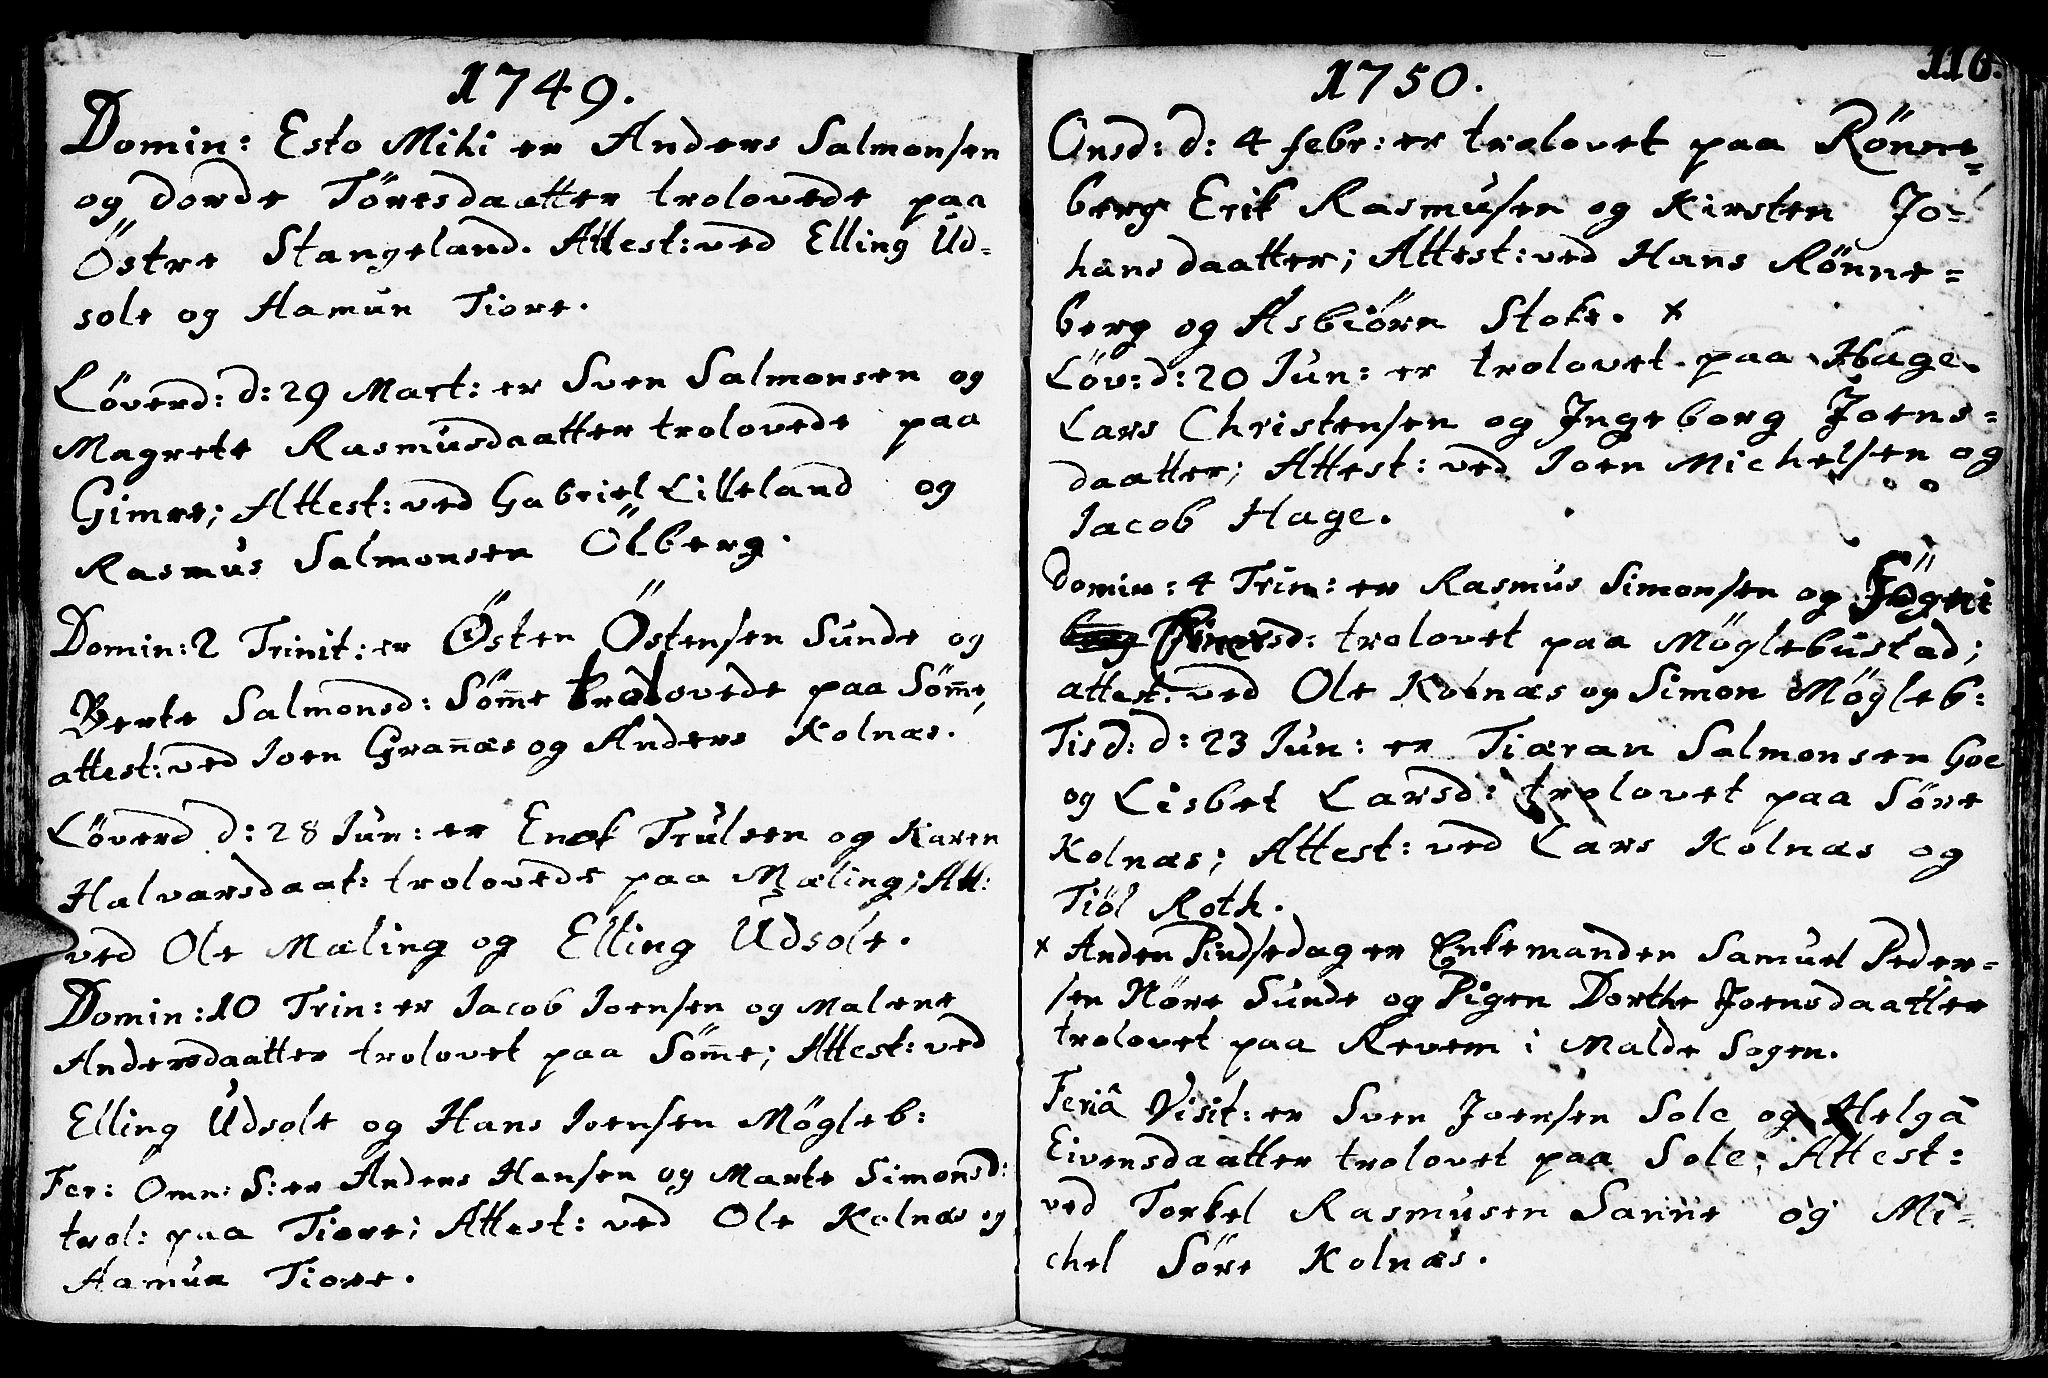 1749.
Domin: Esto Mihi er Anders Salmonsen
og dorde Töresdaatter trolovede paa
Östre Stangeland. Attest: ved Elling Ud-
sole og Hamun Tiore.
Löverd: d: 29 Mart: er Sven Salmonsen og
Magrete Rasmusdaatter trolovede paa
Gimre; Attest: ved Gabriel Lilleland og
Rasmus Salmonsen Ölberg.
Domin: 2 Trinit: er Östen Östensen Sunde og
Berte Salmonsd: Söm̄e trolovede paa Söm̄e,
attest: ved Joen Gran̄æs og Anders Kolnæs.
Löverd d: 28 Jun: er Enok Trulsen og Karen
Halvarsdaat: trolovede paa Mæling; Att:
ved Ole Mæling og Elling Udsole.
Domin: 10 Trin: er Jacob Joensen og Malene
Andersdaatter trolovet paa Söm̄e; Attest: ved
Elling Udsole og Hans Joensen Mögleb:
Fer: Omn: S: er Anders Hansen og Marte Simonsd:
trol: paa Tiore; Attest: ved Ole Kolnæs og
Hamun Tiore.
116.
1750.
Onsd: d: 4 febr: er trolovet paa Rönne-
berg Erik Rasmusen og Kirsten Jo-
hansdaatter; Attest: ved Hans Rönne-
berg og Asbiörn Stoke. x
Löv: d: 20 Jun: er trolovet paa Hage
Lars Christensen og Ingeborg Joens-
daatter; Attest: ved Joen Michelsen og
Jacob Hage.
Domin: 4 Trin: er Rasmus Simonsen og
trolovet paa Möglebustad;
attest: ved Ole Kolnæs og Simon Mögleb:
Tisd: d: 23 Jun: er Tiæran Salmonsen Goe
og Lisbet Larsd: trolovet paa Söre
Kolnæs; Attest: ved Lars Kolnæs og
Tiöl Roth.
x Anden Pindsedag er Enkemanden Samuel Peder-
sen Nöre Sunde og Pigen Dorthe Joensdaatter
trolovet paa Revem i Malde Sogen.
Feriâ Visit: er Sven Joensen Sole og Helga
Eivensdaatter trolovet paa Sole; Attest:
ved Torkel Rasmusen Sanne og Mi-
chel Söre Kolnæs.